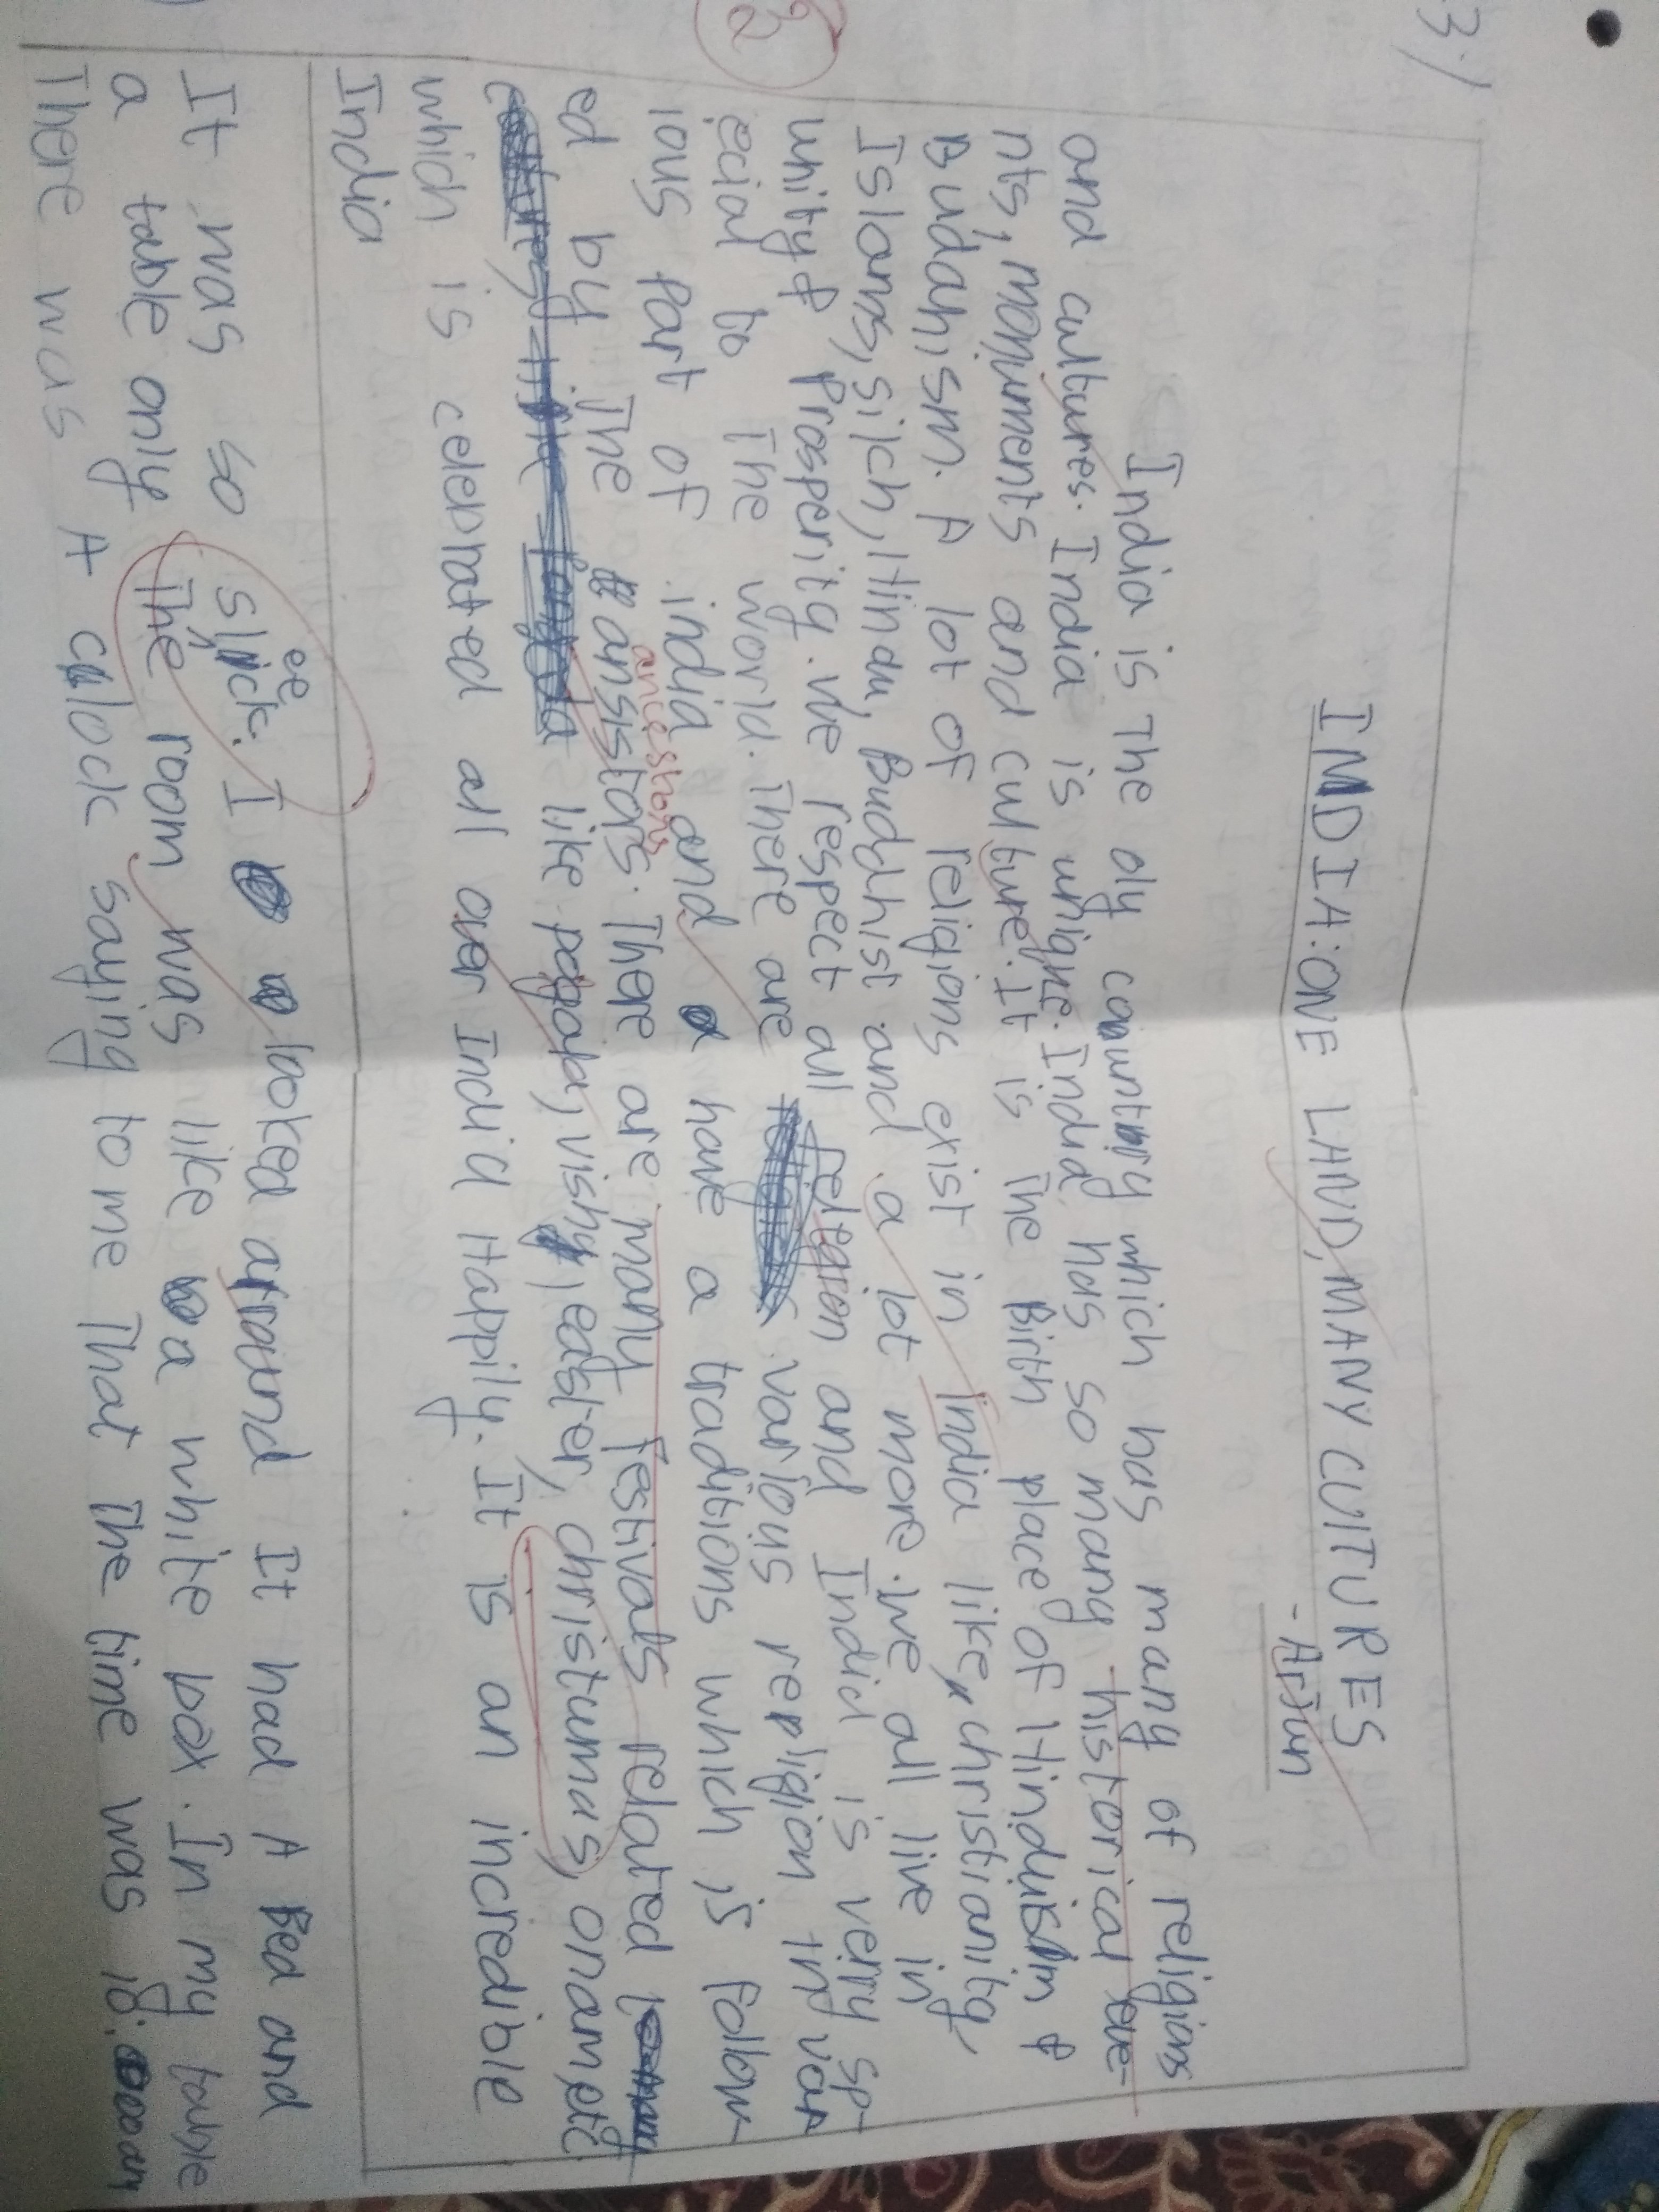 3)
INDIA:ONE LAND, MANY CUlTURES
- Arjun
India is the oly country which has many of religions
and cultures. India is unique. India has so many historical eve-
nts, monuments and culture. It is the Birth place of Hinduism &
Budahism. A lot of religions exist in India like, christianity,
Islams, sikh, Hindu, Buddhist and a lot more. we all live in
unity & Prosperity. we respect all religion and India is very sp-
ecial to the world. There are various religion in var
ious part of india and have a traditions which is follow-
ed by the ansistors. There are many festivals related
ancestors
like pongal, vishy, easter, christumas, onam etc
which is celebrated all over India Happily. It is an incredible
India
2
It was so slick. I looked around It had A Bed and
ee
a table only The room was like a white box. In my table
There was A clock saying to me That The time was 10:00 am